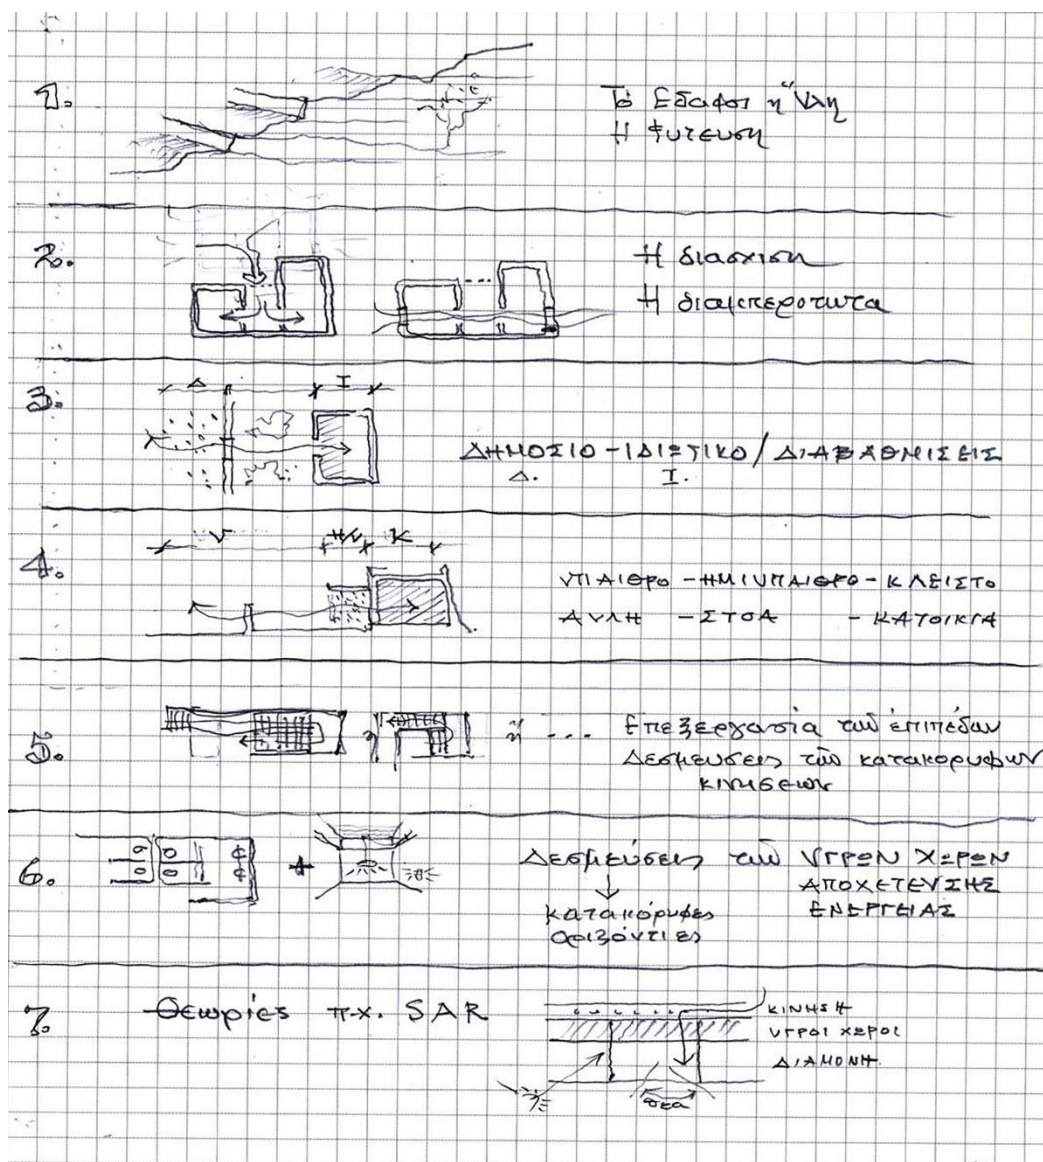 1.
Το Εδαφος η Ύλη
Η Φυτευση
2.
Η διασχιση
Η διαμπεροτητα
3.
Δ Ι
ΔΗΜΟΣΙΟ - ΙΔΙΩΤΙΚΟ / ΔΙΑΒΑΘΜΙΣΕΙΣ
Δ. Ι.
4.
Υ Η/Υ Κ
ΥΠΑΙΘΡΟ - ΗΜΙΥΠΑΙΘΡΟ - ΚΛΕΙΣΤΟ
ΑΥΛΗ - ΣΤΟΑ - ΚΑΤΟΙΚΙΑ
5.
ή ή ... Επεξεργασία των επιπέδων
Δεσμευσεις των κατακορυφων
κινησεων
6.
+ Δεσμεύσεις των ΥΓΡΩΝ ΧΩΡΩΝ
ΑΠΟΧΕΤΕΥΣΗΣ
ΕΝΕΡΓΕΙΑΣ
κατακόρυφες
οριζόντιες
7. Θεωρίες π.χ. SAR
ΚΙΝΗΣΗ
ΥΓΡΟΙ ΧΩΡΟΙ
ΔΙΑΜΟΝΗ
θεα